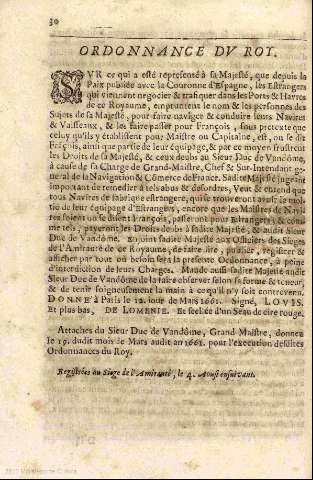 30
ORDONNANCE DV ROY.
SVR ce qui a esté representé à sa Majesté, que depuis la
Paix publiée avec la Couronne d'Espagne, les Estrangers
qui viennent negocier & trafiquer dans les Ports & Havres
de ce Royaume, empruntent le nom & les personnes des
Sujets de sa Majesté, pour faire naviger & conduire leurs Navires
& Vaisseaux, & les faire passer pour François, sous pretexte que
celuy qu'ils y établissent pour Maistre ou Capitaine, est, ou se dit
François, ainsi que partie de leur équipage, & par ce moyen frustrent
les Droits de sa Majesté, & ceux deubs au Sieur Duc de Vandôme,
à cause de sa Charge de Grand-Maistre, Chef & Sur-Intendant gene-
ral de la Navigation & Commerce de France. Sadite Majesté jugeant
important de remedier à tels abus & desordres, Veut & entend que
tous Navires de fabrique estrangere, qui se trouveront avoir la moi-
tié de leur équipage d'Estrangers, encore que les Maistres de Navi-
res soient ou se disent François, passent pour Estrangers; & com-
me tels, payeront les Droits deubs à sadite Majesté, & audit Sieur
Duc de Vandôme. Enjoint sadite Majesté aux Officiers des Sieges
de l'Amirauté de ce Royaume, de faire lire, publier, registrer &
afficher par tout où besoin sera la presente Ordonnance, à peine
d'interdiction de leurs Charges. Mande aussi sadite Majesté audit
Sieur Duc de Vandôme de la faire observer selon sa forme & teneur,
& de tenir soigneusement la main à ce qu'il n'y soit contrevenu.
DONNE à Paris le 12. jour de Mars 1661. Signé, LOVIS.
Et plus bas, DE LOMENIE. Et seellée d'un Seau de cire rouge.
Attaches du Sieur Duc de Vandôme, Grand Maistre, données
le 19. dudit mois de Mars audit an 1661. pour l'execution desdites
Ordonnances du Roy.
Registrées au Siege de l'Amirauté, le 4. Aoust ensuivant.